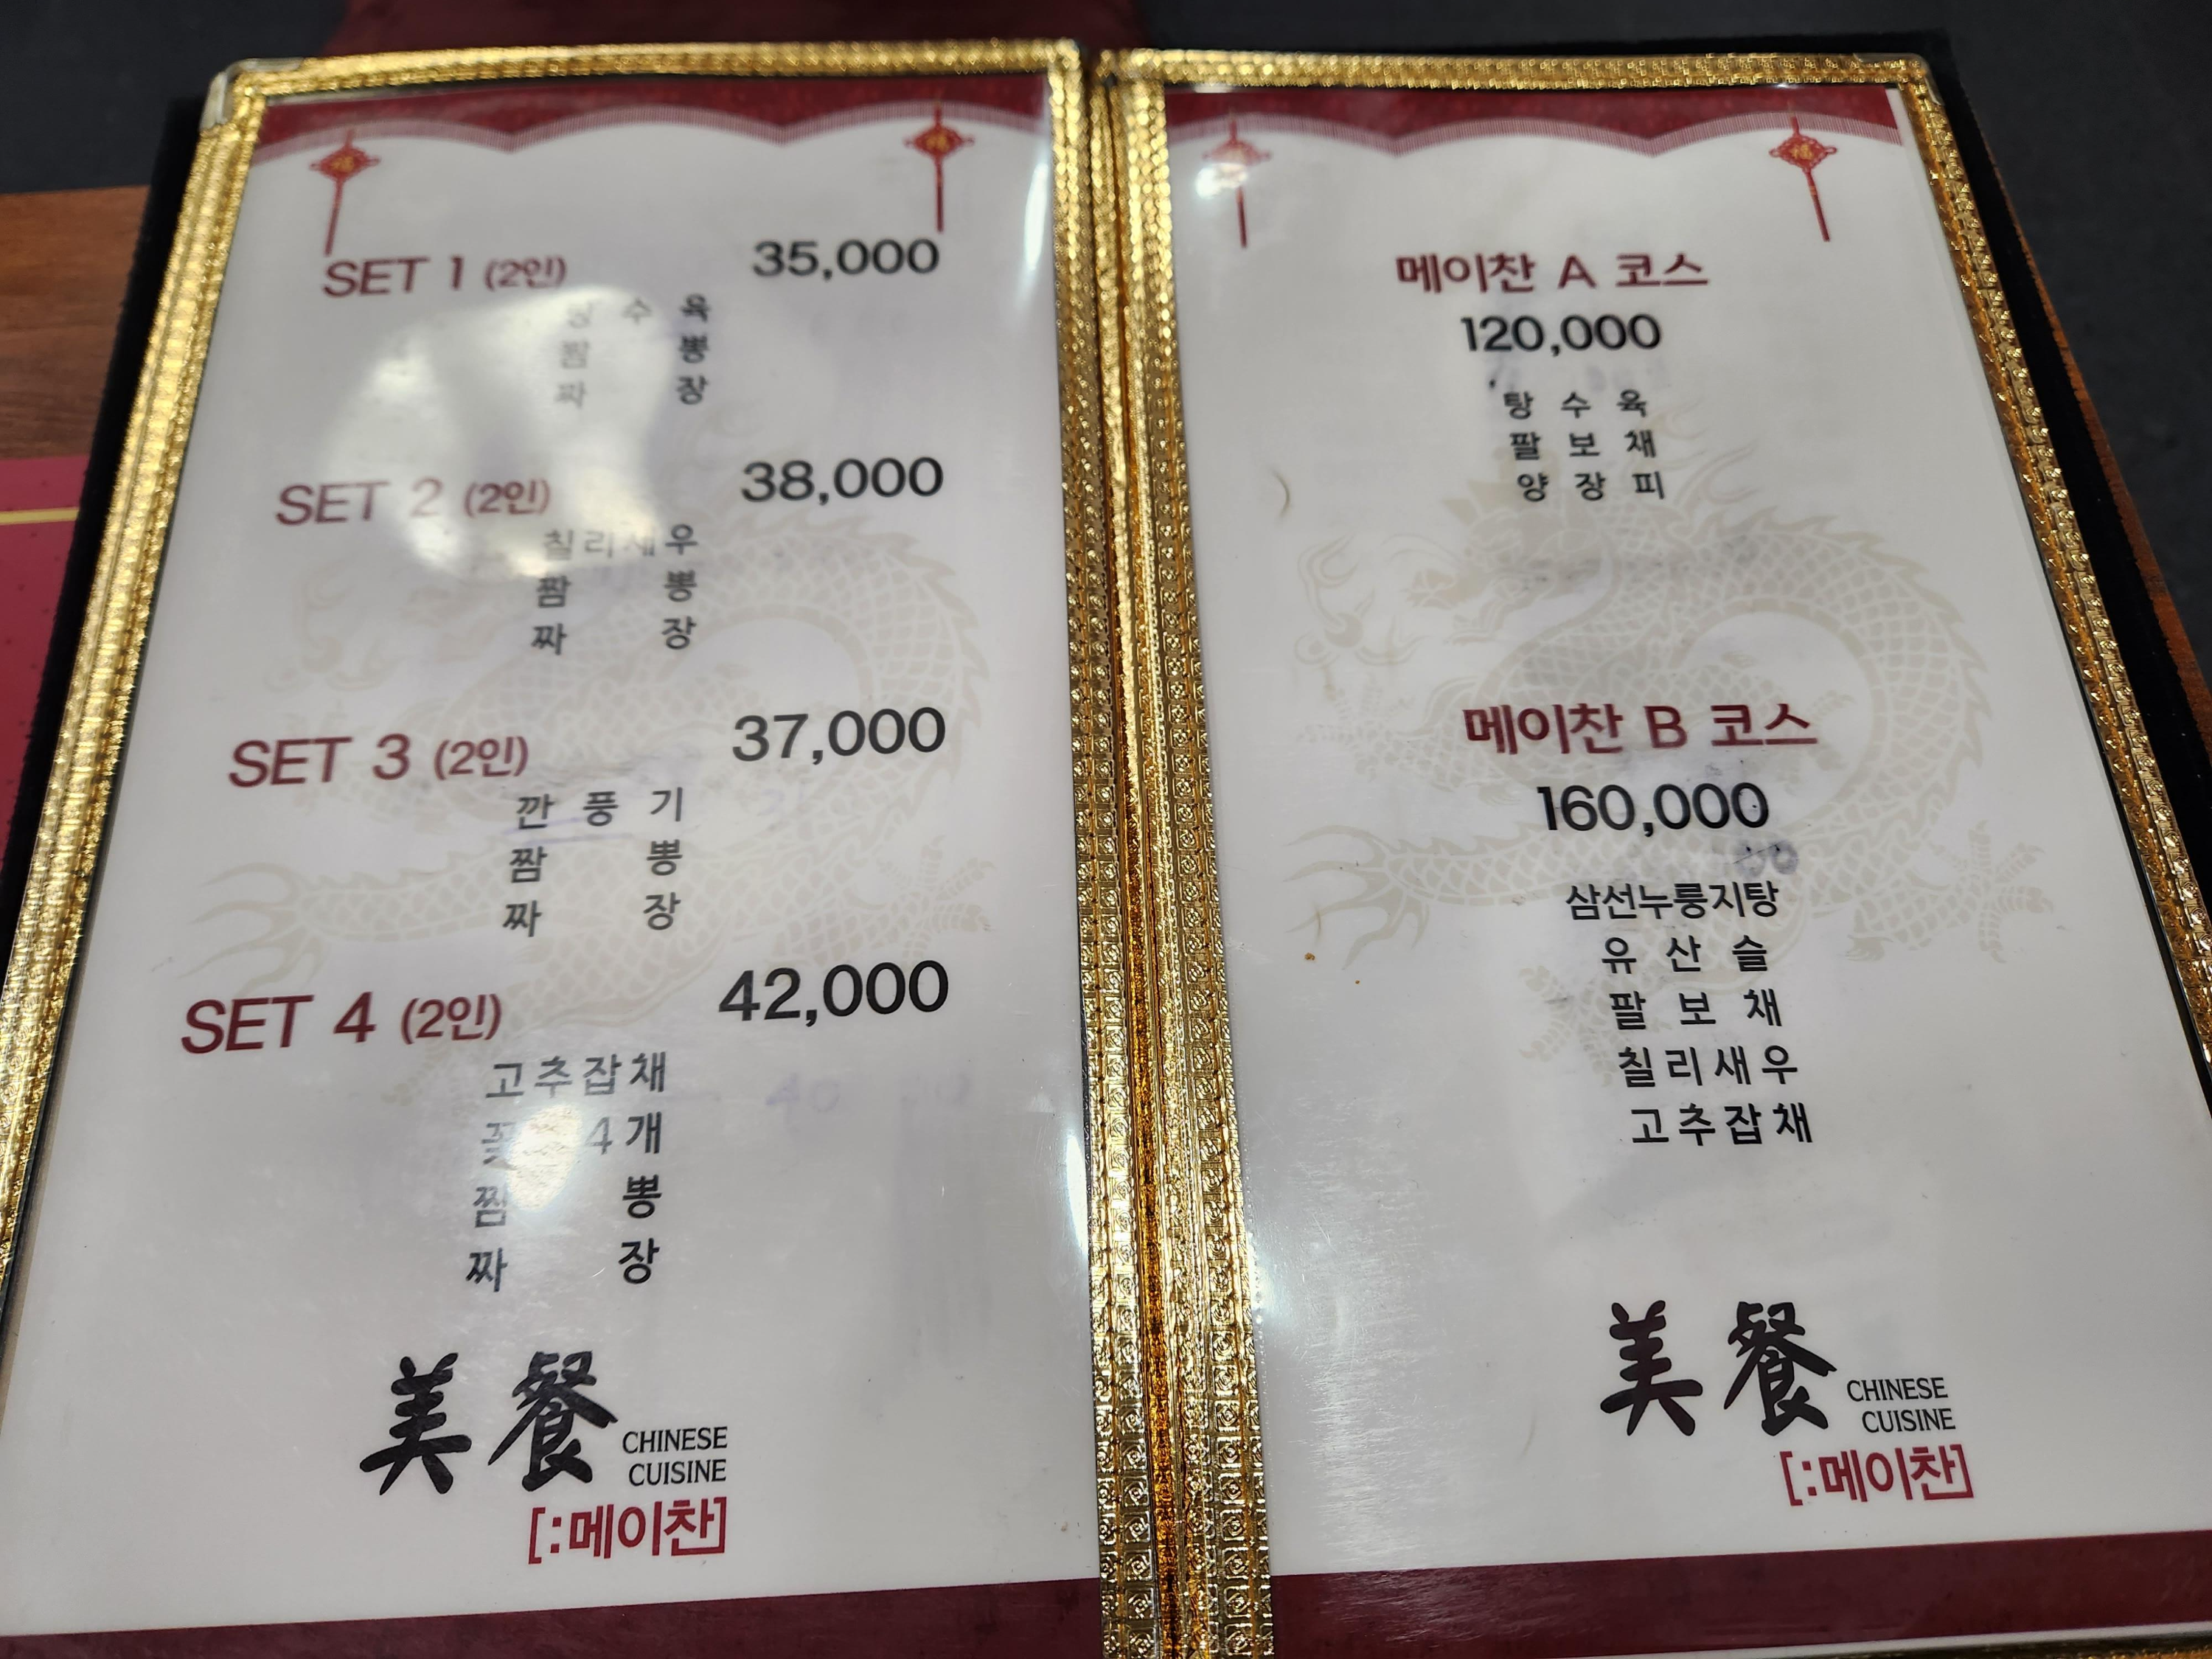 SET 1 (2인) 35,000
탕 수 육
짬 뽕
짜 장
SET 2 (2인) 38,000
칠리새우
짬 뽕
짜 장
SET 3 (2인) 37,000
깐 풍 기
짬 뽕
짜 장
SET 4 (2인) 42,000
고추잡채
4개
짬 뽕
짜 장
美餐
CHINESE
CUISINE
[:메이찬]
메이찬 A 코스
120,000
탕 수 육
팔 보 채
양 장 피
메이찬 B 코스
160,000
삼선누룽지탕
유 산 슬
팔 보 채
칠리새우
고추잡채
美餐
CHINESE
CUISINE
[:메이찬]